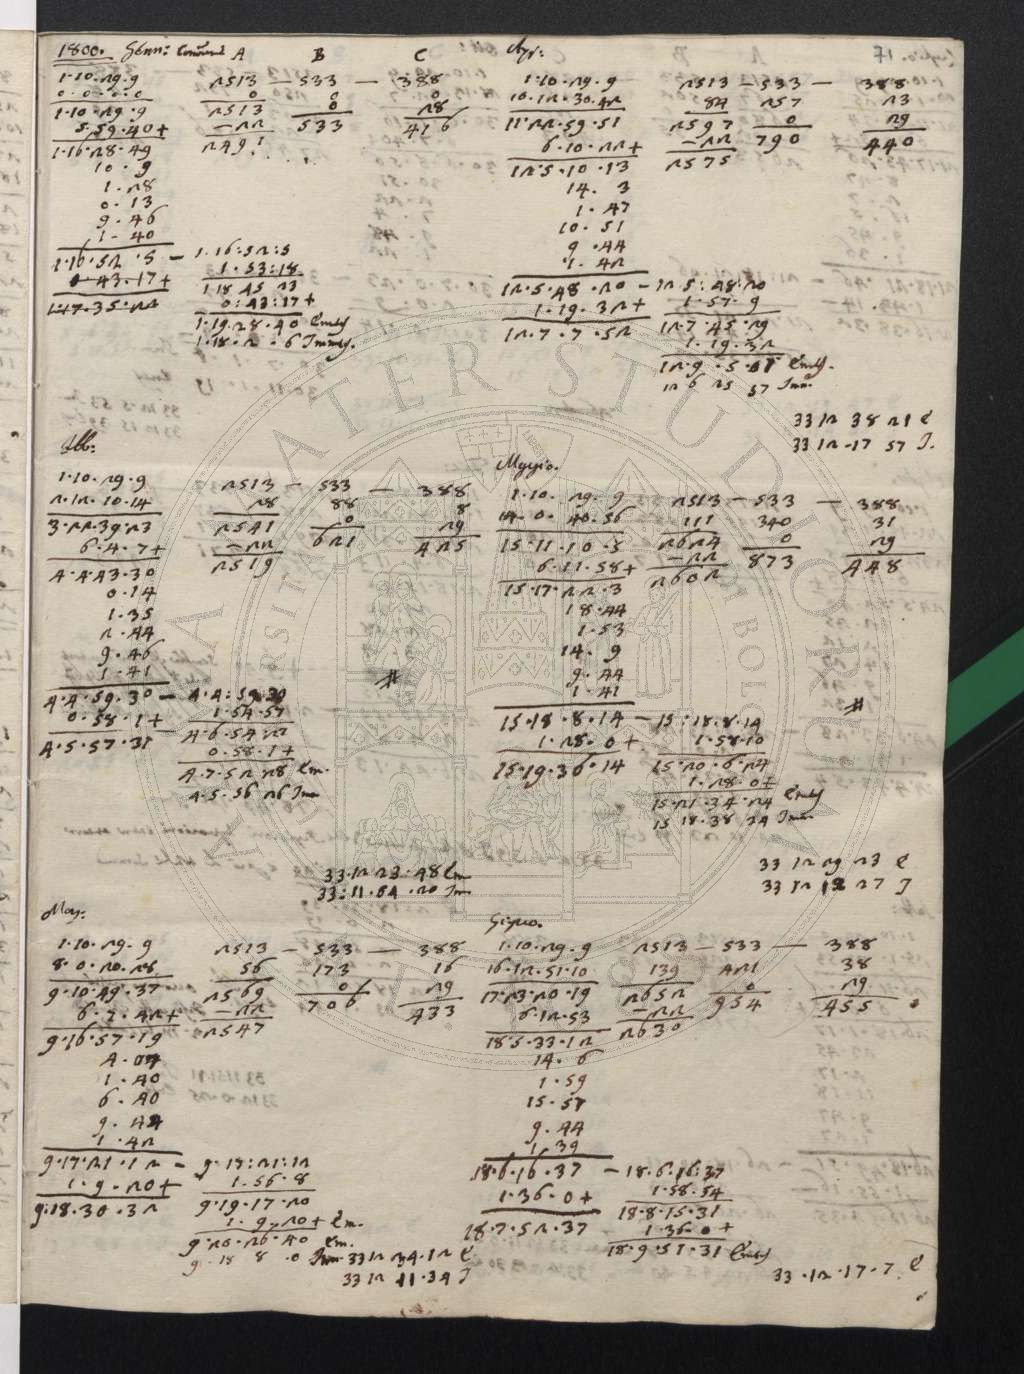 1800. Genn: A B C
1·10·29·9 2513 — 533 — 388
0·0·0·0 0 0 0
1·10·29·9 2513 0 28
5·59·40+ —22 533 416
1·16·28·49 2491
10·9
1·28
0·13
9·46
1·40
1·16·52·5 — 1·16:52:5
0·43·17+ 1·53:18
1·17·35·22 1·18 45 23
0:43:17+
1·19·28·40 Emers
1·18·2·6 Immers.
Apr:
1·10·29·9 2513 — 533 — 388
10·12·30·42 84 257 23
11·22·59·51 2597 0 29
6·10·22+ —22 790 440
12·5·10·13 2575
14·3
1·47
10·51
9·44
1·42
12·5·48·20 — 12·5:48:20
1·19·32+ 1·57·9
12·7·7·52 12·7·45·29
1·19·32
12·9·5·01 Emers.
12 6 25 57 Imm.
33 12 38 21 E
33 12 17 57 I.
Feb:
1·10·29·9 2513 — 533 — 388
2·12·10·14 28 88 8
3·22·39·23 2541 0 29
6·4·7+ —22 621 425
4·4·43·30 2519
0·14
1·35
2·44
9·46
1·41
4·4·59·30 — 4·4:59:30
0·58·1+ 1·54·57
4·5·57·31 4·6·54·27
0·58·1+
4·7·52 28 Em.
4·5·56 26 Imm
#
33·12 23·48 Em
33:11·54·20 Im
Maggio.
1·10·29·9 2513 — 533 — 388
14·0·40·56 111 340 31
15·11·10·5 2624 0 29
6·11·58+ —22 873 448
15·17·22·3 2602
18·44
1·53
14·9
9·44
1·41
15·18·8·14 — 15:18·8·14
1·28·0+ 1·58·10
15·19·36·14 15·20·6·24
1·28·0+
15·21·34·24 Emers
15 18·38 24 Imm.
#
33 12 29 23 E
33 12 12 27 I
Mar:
1·10·29·9 2513 — 533 — 388
8·0·20·28 56 173 16
9·10·49·37 2569 0 29
6·7·42+ —22 706 433
9·16·57·19 2547
4·07
1·40
6·40
9·42
1·42
9·17·21·12 — 9·17:21:12
1·9·20+ 1·56·8
9·18·30·32 9·19·17·20
1·9·20+ Em.
9·20·26·40 Em.
9·18 8·0 Imm 33 12 34·12 E
33 12 11·34 I
Giugno.
1·10·29·9 2513 — 533 — 388
16·12·51·10 139 421 38
17·23·20·19 2652 0 29
6·12·53 —22 954 455
18·5·33·12 2630
14·6
1·59
15·57
9·44
1·39
18·6·16·37 — 18·6·16:37
1·36·0+ 1·58·54
18·7·52·37 18·8·15·31
1·36·0+
18·9·51·31 Emers
33·12·17·7 E